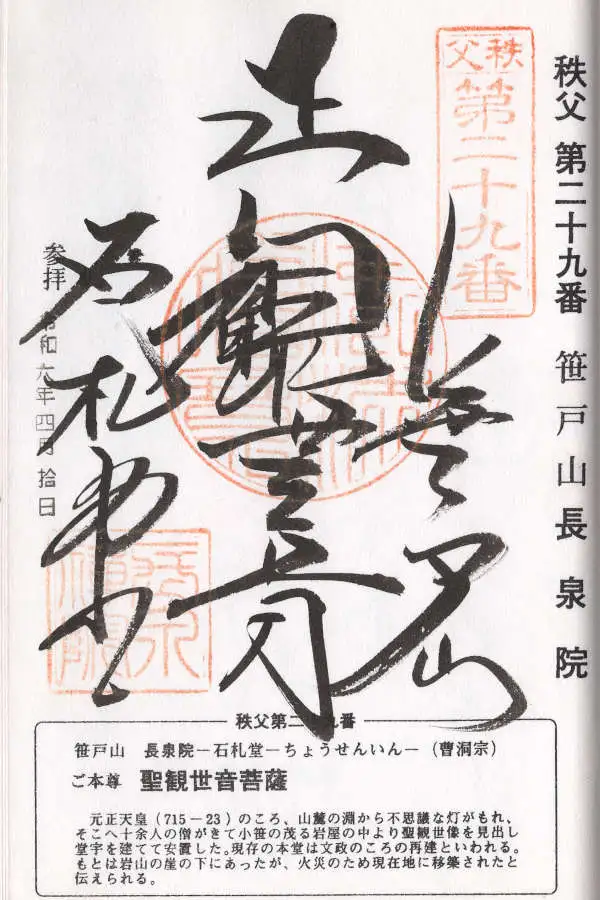 秩父 第二十九番 笹戸山長泉院
秩父
第二十九番
石札堂
参拝 令和六年四月拾日
秩父第二十九番
笹戸山 長泉院―石札堂―ちょうせんいん― (曹洞宗)
ご本尊 聖観世音菩薩
元正天皇(715－23)のころ、山麓の淵から不思議な灯がもれ、
そこへ十余人の僧がきて小笹の茂る岩屋の中より聖観世像を見出し
堂宇を建てて安置した。現存の本堂は文政のころの再建といわれる。
もとは岩山の崖の下にあったが、火災のため現在地に移築されたと
伝えられる。